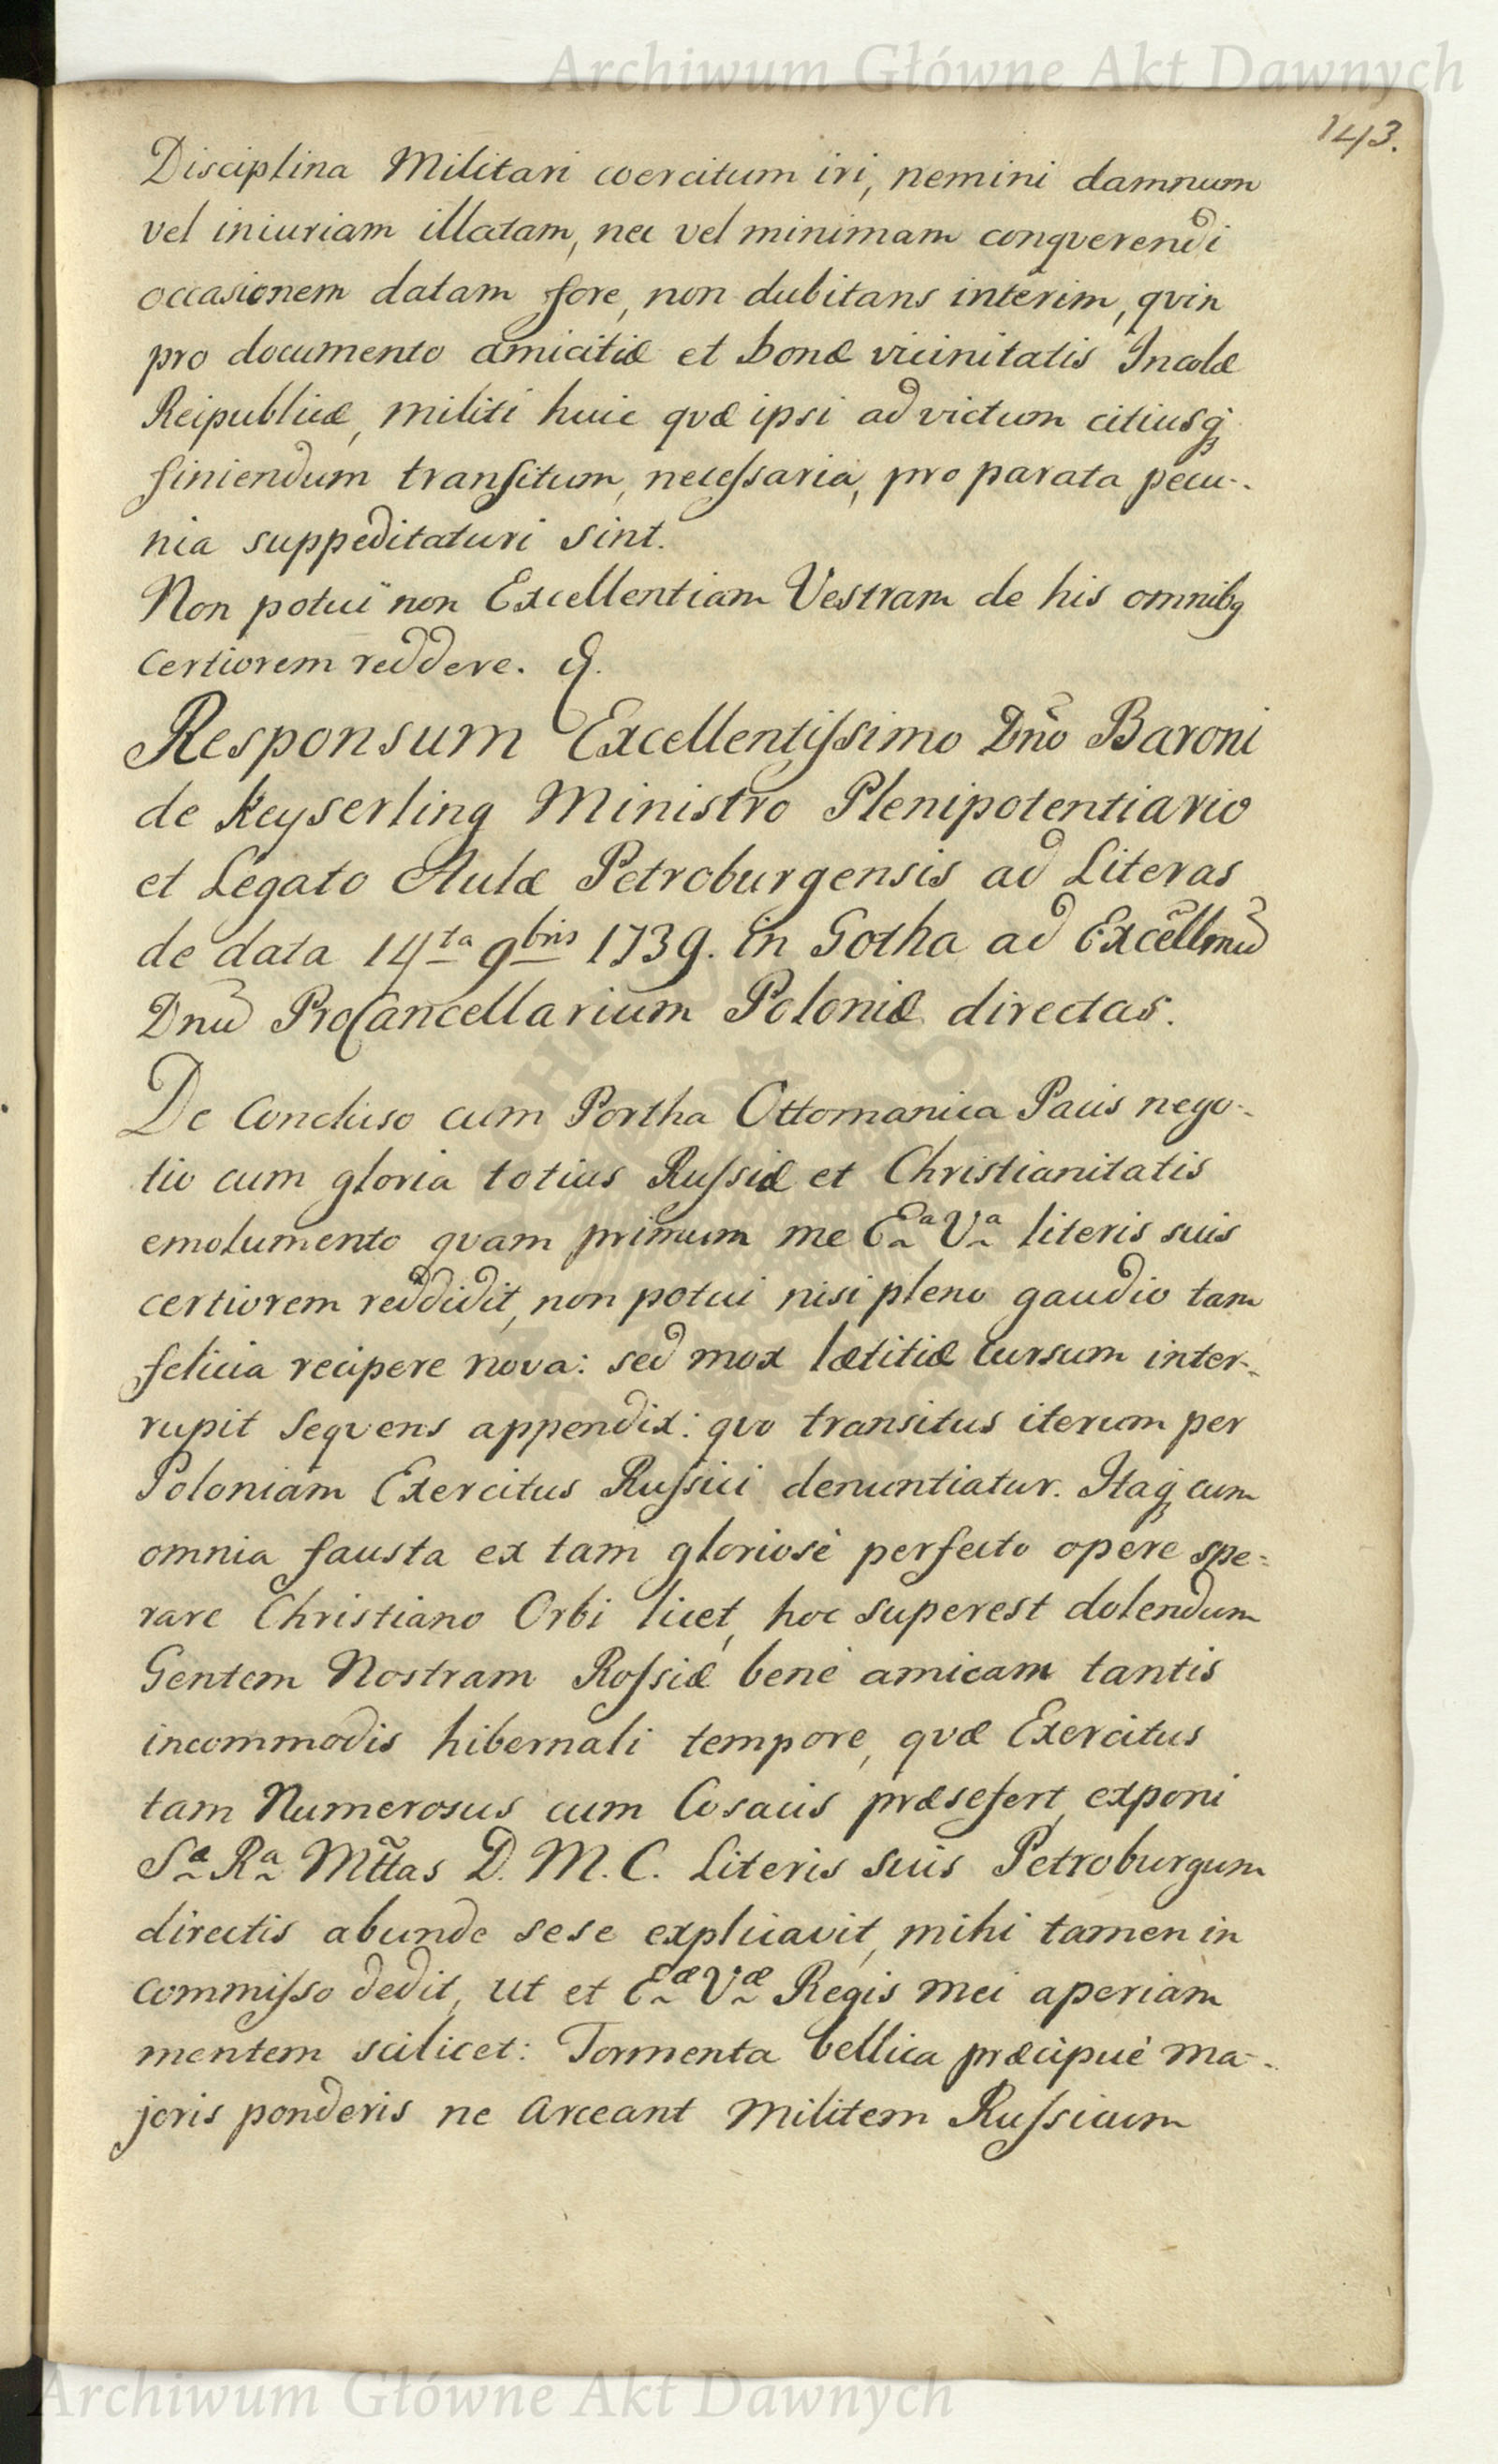 Archiwum Główne Akt Dawnych
143.
Disciplina Militari coercitum iri, nemini damnum
vel iniuriam illatam, nec vel minimam conqverendi
occasionem datam fore, non dubitans interim, qvin
pro documento amicitiæ et bonæ vicinitatis Incolæ
Reipublicæ, militi huic qvæ ipsi ad victum citiusq́;
finiendum tranſitum, neceſsaria, pro parata pecu-
nia suppeditaturi sint.
Non potui non Excellentiam Vestram de his omnibq
certiorem reddere. &.
Responsum Excellentiſsimo Dño Baroni
de Keyserling Ministro Plenipotentiario
et Legato Aulæ Petroburgensis ad Literas
de data 14ta 9bris 1739. in Gotha ad Excellm̃ũ
Dnũ ProCancellarium Poloniæ directas.
De Concluso cum Portha Ottomanica Pacis nego-
tio cum gloria totius Ruſsiæ et Christianitatis
emolumento qvam primum me Ea Va literis suis
certiorem reddidit, non potui nisi pleno gaudio tam
felicia recipere nova: sed mox lætitiæ cursum inter-
rupit seqvens appendix: qvo transitus iterum per
Poloniam Exercitus Ruſsici denuntiatur. Itaq; cum
omnia fausta ex tam gloriosè perfecto opere spe-
rare Christiano Orbi licet, hoc superest dolendum
Gentem Nostram Roſsiæ benè amicam tantis
incommodis hibernali tempore, qvæ Exercitus
tam Numerosus cum Cosacis præsefert, exponi
Sa Ra Mttas D. M. C. Literis suis Petroburgum
directis abunde sese explicavit, mihi tamen in
commiſso dedit, ut et Eæ Væ Regis mei aperiam
mentem scilicet: Tormenta bellica præcipuè ma-
joris ponderis ne arceant militem Ruſsicum
Archiwum Główne Akt Dawnych